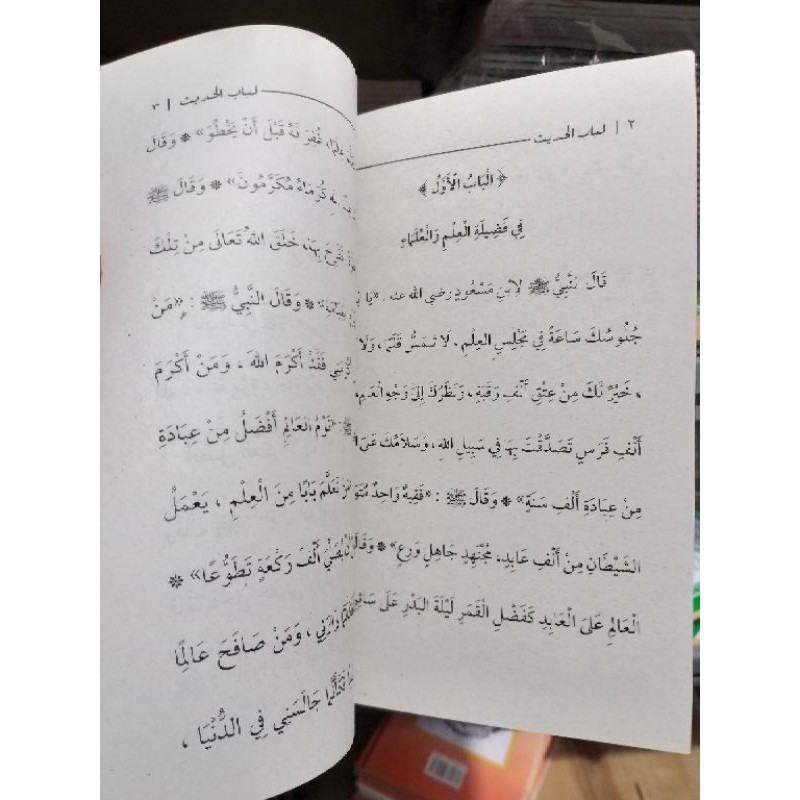 ٢ | لباب الحديث
﴿ الْبَابُ الْأَوَّلُ ﴾
فِي فَضِيلَةِ الْعِلْمِ وَالْعُلَمَاءِ
قَالَ النَّبِيُّ ﷺ لِابْنِ مَسْعُودٍ رضي الله عنه : «يَا
جُلُوسُكَ سَاعَةً فِي مَجْلِسِ الْعِلْمِ ، لَا تَمَسُّ قَلَمًا ، وَلَا
، خَيْرٌ لَكَ مِنْ عِتْقِ أَلْفِ رَقَبَةٍ ، وَنَظَرُكَ إِلَى وَجْهِ الْعَالِمِ،
أَلْفِ فَرَسٍ تَصَدَّقْتَ بِهَا فِي سَبِيلِ اللهِ ، وَسَلَامُكَ عَلَى
مِنْ عِبَادَةِ أَلْفِ سَنَةٍ» * وَقَالَ ﷺ : «فَقِيهٌ وَاحِدٌ
الشَّيْطَانِ مِنْ أَلْفِ عَابِدٍ، مُجْتَهِدٍ جَاهِلٍ وَرِعٍ» * وَقَالَ
الْعَالِمِ عَلَى الْعَابِدِ كَفَضْلِ الْقَمَرِ لَيْلَةَ الْبَدْرِ عَلَى
لباب الحديث | ٣
غُفِرَ لَهُ قَبْلَ أَنْ يَخْطُوَ» * وَقَالَ
كُرَمَاءُ مُكَرَّمُونَ» * وَقَالَ ﷺ
بِهَا، خَلَقَ اللهُ تَعَالَى مِنْ تِلْكَ
* وَقَالَ النَّبِيُّ ﷺ : «مَنْ
فَقَدْ أَكْرَمَ اللهَ ، وَمَنْ أَكْرَمَ
نَوْمُ الْعَالِمِ أَفْضَلُ مِنْ عِبَادَةِ
تَعَلَّمَ بَابًا مِنَ الْعِلْمِ ، يَعْمَلُ
أَلْفَ رَكْعَةٍ تَطَوُّعًا» *
زَارَنِي ، وَمَنْ صَافَحَ عَالِمًا
جَالَسَنِي فِي الدُّنْيَا ،